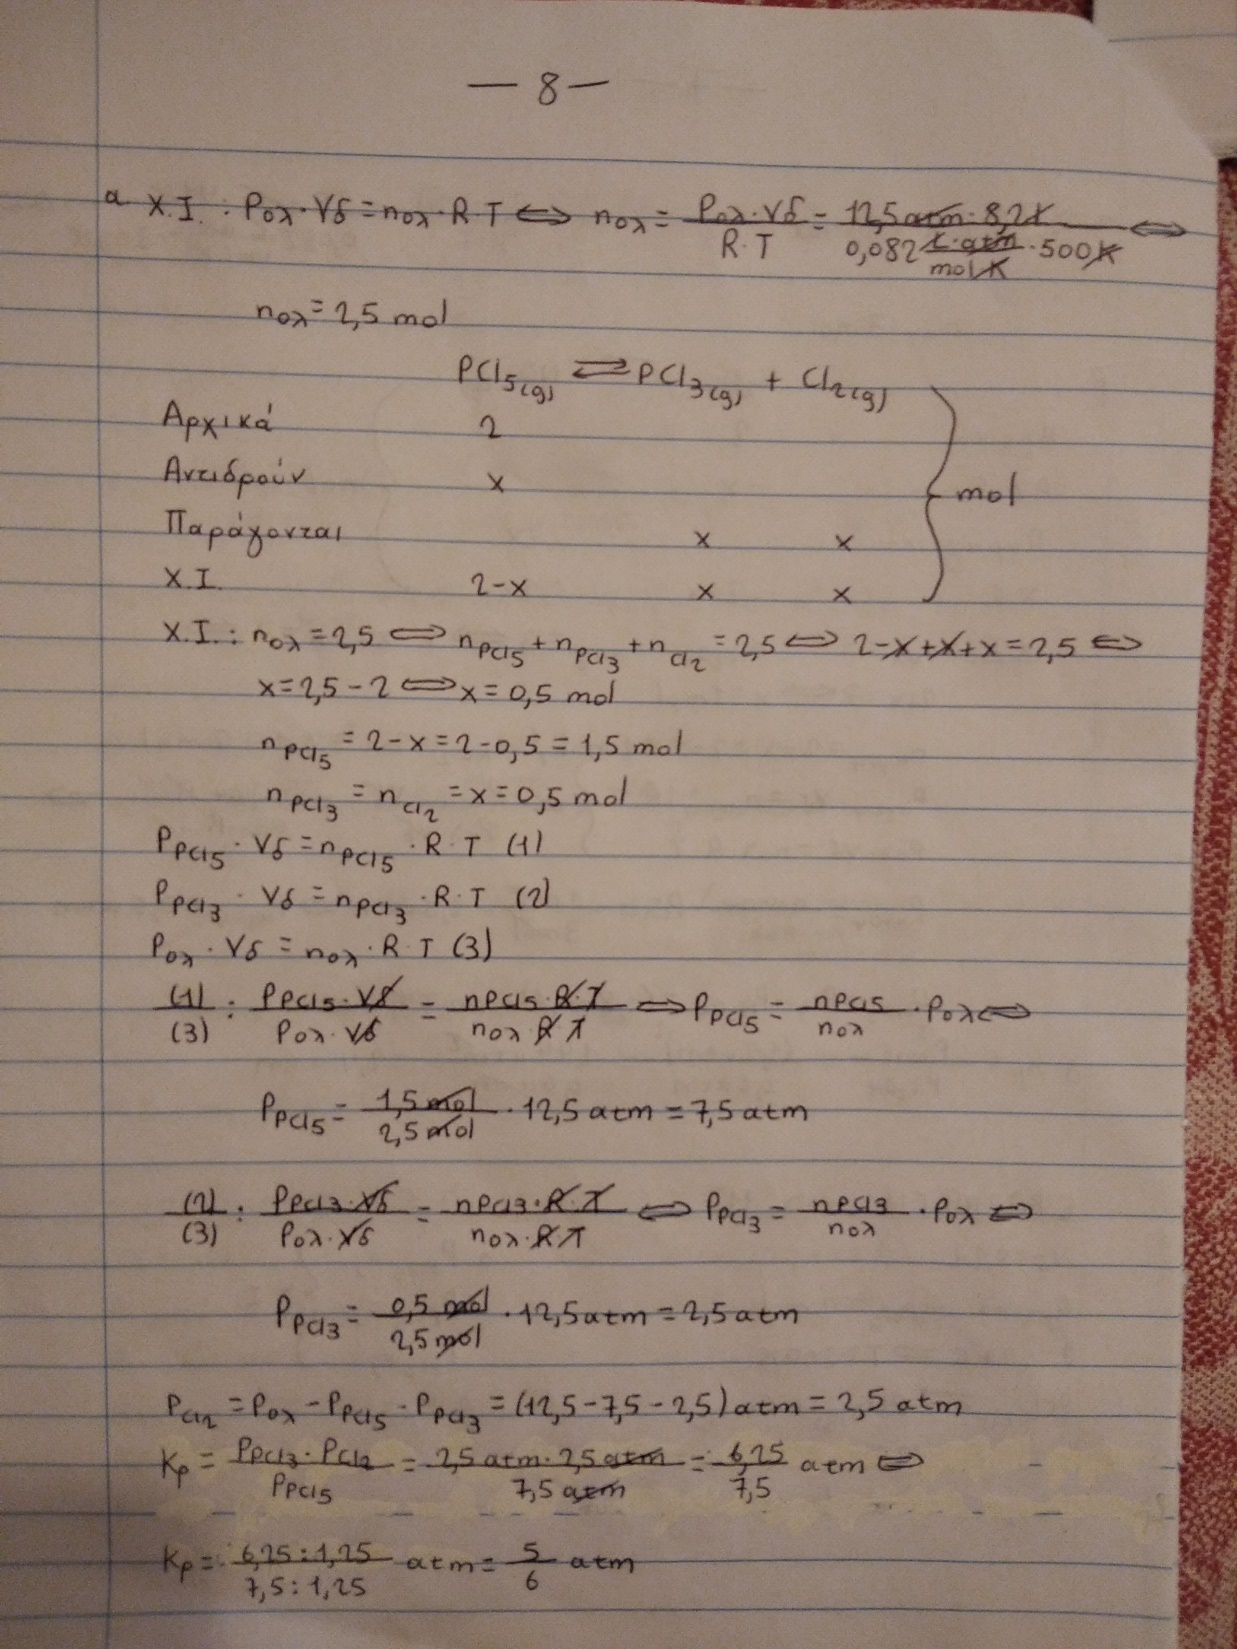 — 8 —
α Χ.Ι. : Pολ · Vδ = nολ · R · T ⇔ nολ = Pολ · Vδ / R · T = 12,5 atm · 8,2 L / 0,082 L · atm / mol K · 500 K ⇔
nολ = 2,5 mol
PCl5(g) ⇌ PCl3(g) + Cl2(g)
Αρχικά 2
Αντιδρούν x
Παράγονται x x } mol
Χ.Ι. 2-x x x
Χ.Ι. : nολ = 2,5 ⇔ nPCl5 + nPCl3 + nCl2 = 2,5 ⇔ 2-x+x+x = 2,5 ⇔
x = 2,5 - 2 ⇔ x = 0,5 mol
nPCl5 = 2-x = 2-0,5 = 1,5 mol
nPCl3 = nCl2 = x = 0,5 mol
PPCl5 · Vδ = nPCl5 · R · T (1)
PPCl3 · Vδ = nPCl3 · R · T (2)
Pολ · Vδ = nολ · R · T (3)
(1) / (3) : PPCl5 · Vδ / Pολ · Vδ = nPCl5 · R · T / nολ · R T ⇔ PPCl5 = nPCl5 / nολ · Pολ ⇔
PPCl5 = 1,5 mol / 2,5 mol · 12,5 atm = 7,5 atm
(2) / (3) : PPCl3 · Vδ / Pολ · Vδ = nPCl3 · R · T / nολ · R T ⇔ PPCl3 = nPCl3 / nολ · Pολ ⇔
PPCl3 = 0,5 mol / 2,5 mol · 12,5 atm = 2,5 atm
PCl2 = Pολ - PPCl5 - PPCl3 = (12,5 - 7,5 - 2,5) atm = 2,5 atm
Kp = PPCl3 · PCl2 / PPCl5 = 2,5 atm · 2,5 atm / 7,5 atm = 6,25 / 7,5 atm ⇔
Kp = 6,25 : 1,25 / 7,5 : 1,25 atm = 5 / 6 atm